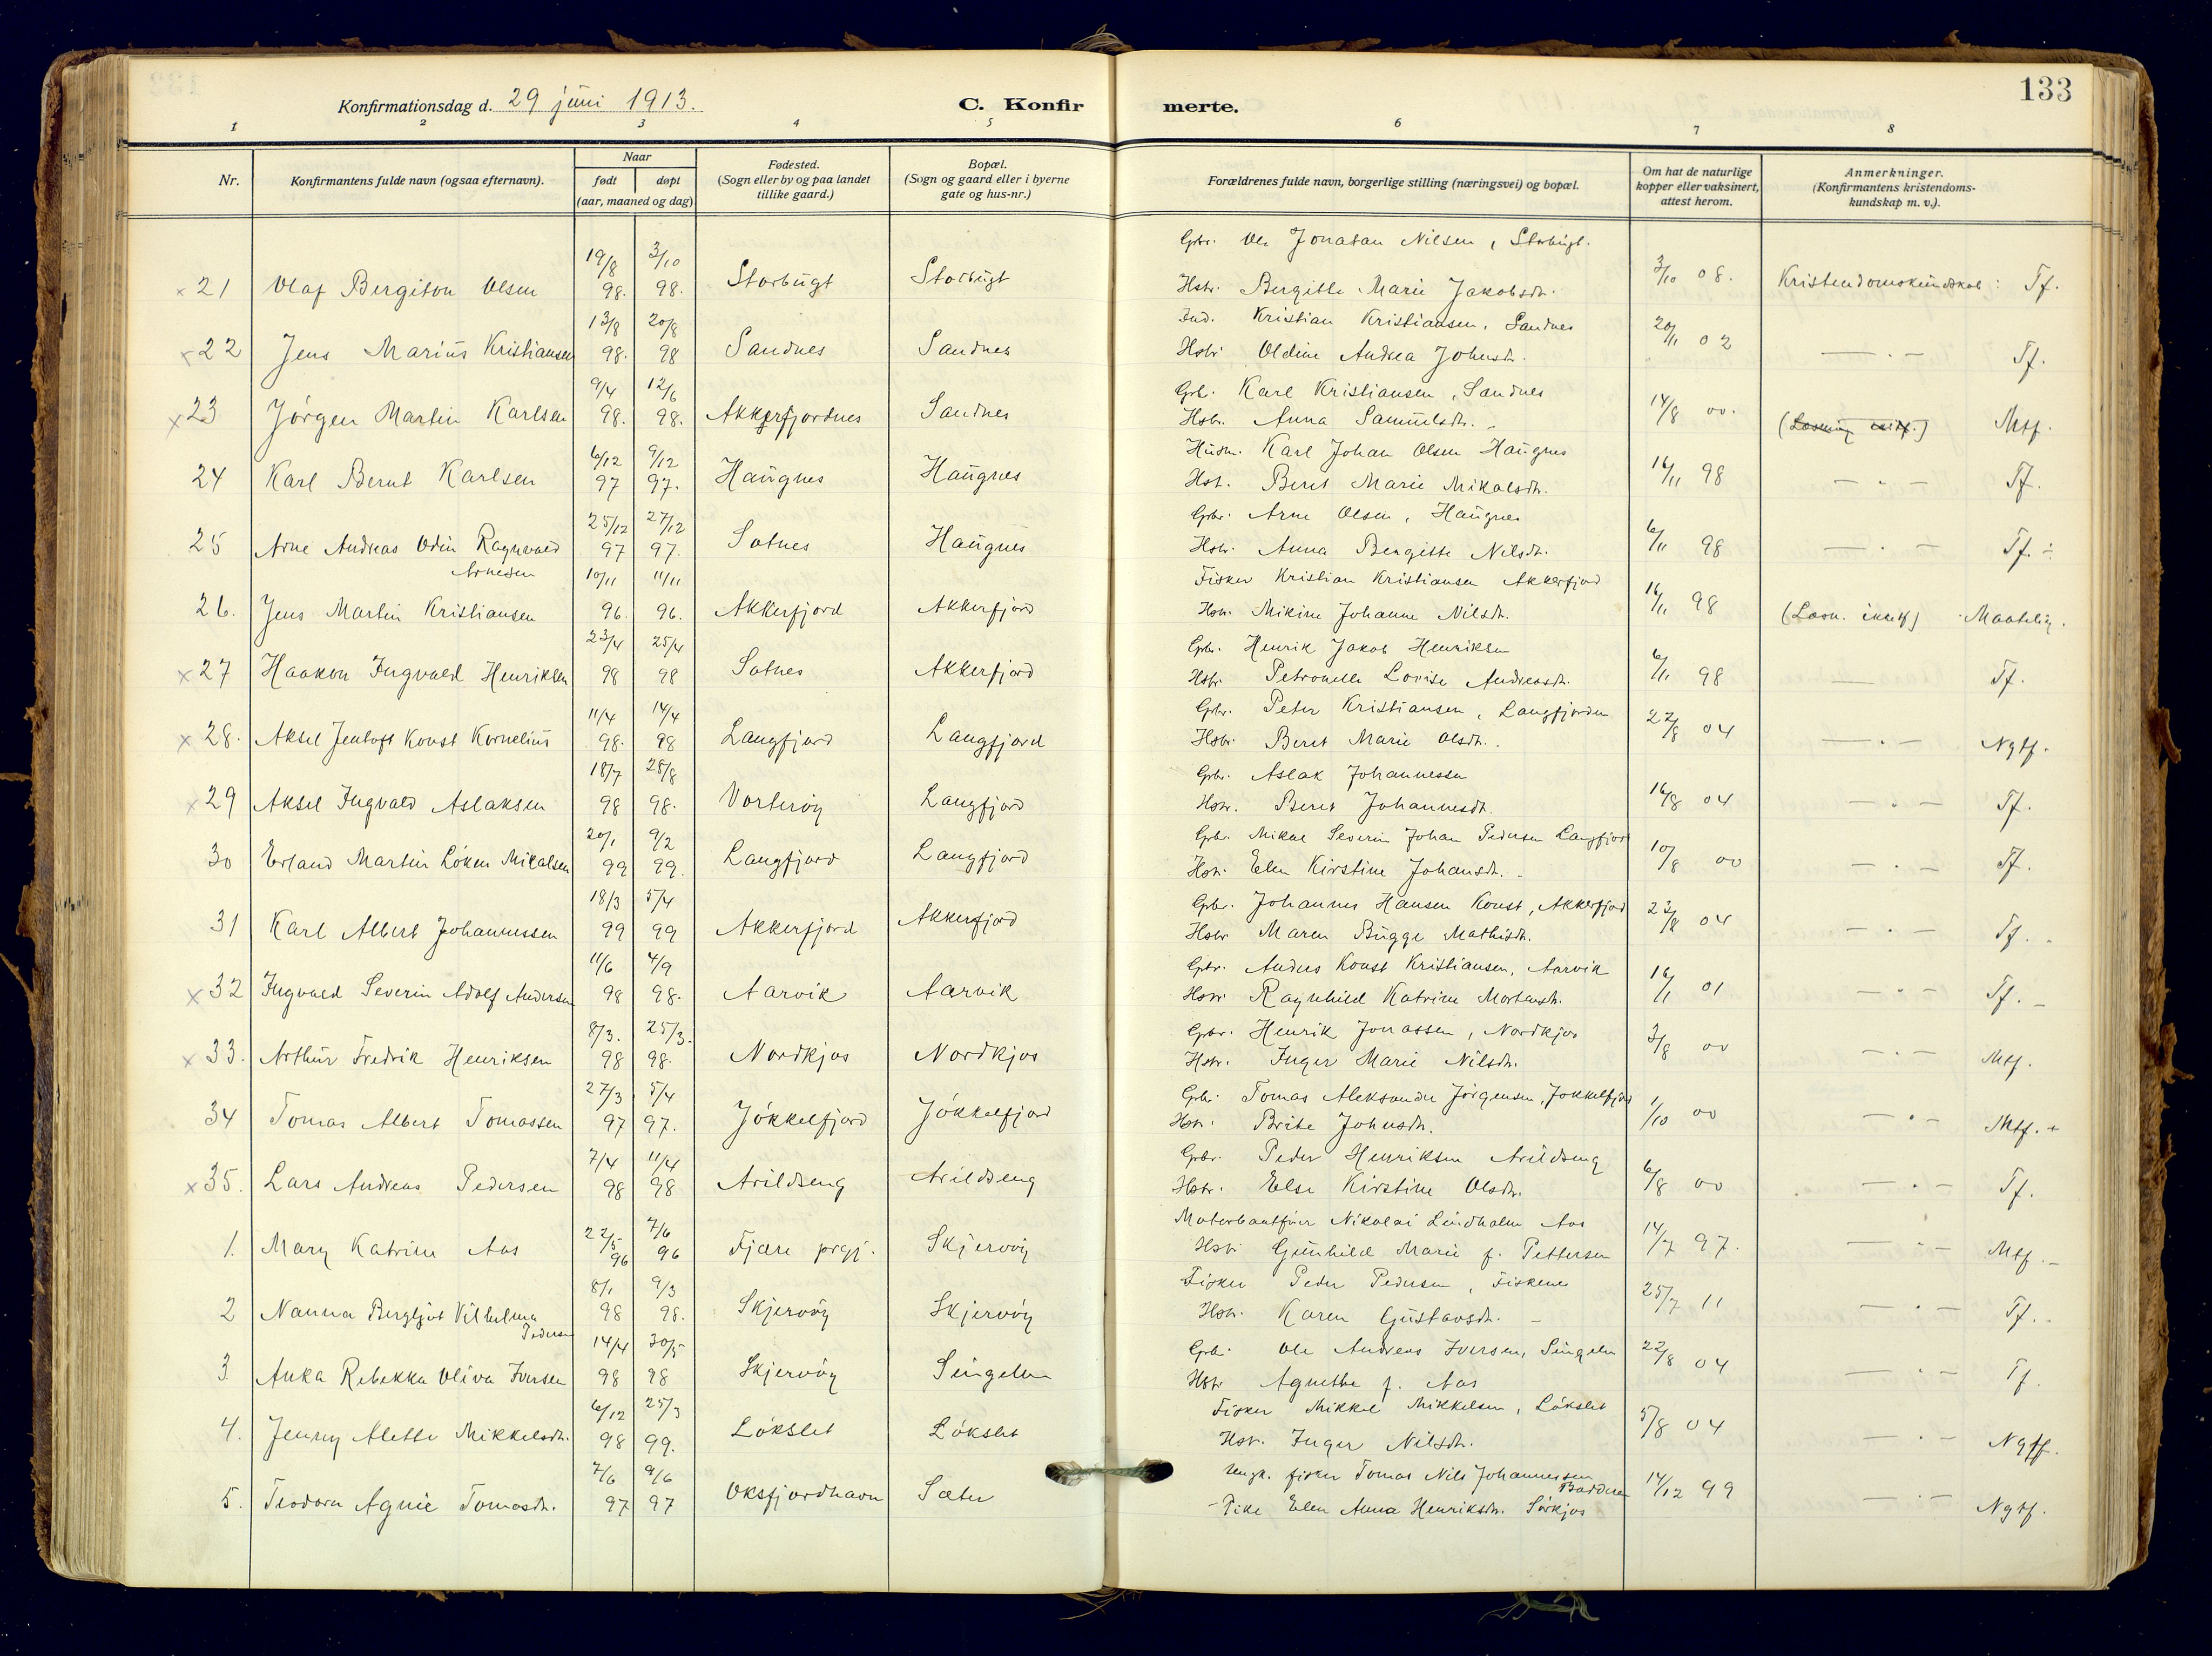 133
Konfirmationsdag d. 29 juni 1913.
C. Konfirmerte.
1 2 3 4 5 6 7 8
Nr.
Konfirmantens fulde navn (ogsaa efternavn).
Naar
født døpt
(aar, maaned og dag)
Fødested.
(Sogn eller by og paa landet
tillike gaard.)
Bopæl.
(Sogn og gaard eller i byerne
gate og hus-nr.)
Forældrenes fulde navn, borgerlige stilling (næringsvei) og bopæl.
Om hat de naturlige
kopper eller vaksinert,
attest herom.
Anmerkninger.
(Konfirmantens kristendoms-
kundskap m. v.).
19/8 3/10 Gbr. Ole Jonatan Nilsen, Storbugt.
× 21 Olaf Bergiton Olsen 98. 98. Storbugt Storbugt Hstr. Bergitte Marie Jakobsdtr. 3/10 08. Kristendomskundskab: Tf.
13/8 20/8 Ind. Kristian Kristiansen, Sandnes
× 22 Jens Marius Kristiansen 98. 98 Sandnes Sandnes Hstr. Oldine Andrea Johnsdtr. 20/11 02 — . — Tf.
9/4 12/6 Gbr. Karl Kristiansen, Sandnes
× 23 Jørgen Martin Karlsen 98. 98. Akkerfjordnes Sandnes Hstr. Anna Samuelsdtr. 14/8 00. Mtf.
6/12 9/12 Husm. Karl Johan Olsen Haugnes
24 Karl Bernt Karlsen 97 97. Haugnes Haugnes Hst. Beret Marie Mikalsdtr. 16/11 98 — . — Tf.
25/12 27/12 Gbr. Arne Olsen, Haugnes
25 Arne Andreas Odin Ragnvald 97 97. Sotnes Haugnes Hstr. Anna Bergitte Nilsdtr. 6/11 98 — . — Tf. ÷
Arnesen 10/11 11/11 Fisker Kristian Kristiansen Akkerfjord
26. Jens Martin Kristiansen 96. 96. Akkerfjord Akkerfjord Hstr. Mikine Johanne Nilsdtr. 16/11 98 (Læsn. ikke tf) Maatelig.
23/4 25/4 Gbr. Henrik Jakob Henriksen
× 27 Haakon Ingvald Henriksen 98 98 Sotnes Akkerfjord Hstr. Petronelle Lovise Andreasdtr. 6/11 98 — Tf.
11/4 14/4 Gbr. Peter Kristiansen, Langfjorden
× 28. Aksel Jentoft Konst Kornelius 98. 98 Langfjord Langfjord Hstr. Beret Marie Olsdtr. 22/8 04 — . — Ngtf.
18/7 28/8 Gbr. Aslak Johannessen
× 29 Aksel Ingvald Aslaksen 98 98. Vorterøy Langfjord Hstr. Beret Johannesdtr. 16/8 04 — . — Tf.
20/1 9/2 Gbr. Mikal Severin Johan Pedersen Langfjord
30 Erland Martin Løken Mikalsen 99 99. Langfjord Langfjord Hstr. Elen Kirstine Johansdtr. 10/8 00 — . — Tf.
18/3 5/4 Gbr. Johannes Hansen Konst, Akkerfjord
31 Karl Albert Johannessen 99 99 Akkerfjord Akkerfjord Hstr. Maren Bugge Mathisdtr. 23/8 04 — . — Tf.
11/6 4/9 Gbr. Anders Konst Kristiansen, Aarvik
× 32 Ingvald Severin Adolf Andersen 98 98. Aarvik Aarvik Hstr. Ragnhild Katrine Mortensdtr. 16/1 01 — . — Tf.
8/3. 25/3. Gbr. Henrik Jonassen, Nordkjos
× 33. Arthur Fredrik Henriksen 98 98. Nordkjos Nordkjos Hstr. Inger Marie Nilsdtr. 3/8 00 — . — Mtf.
27/3 5/4 Gbr. Tomas Aleksander Jørgensen, Jøkkelfjord
34 Tomas Albert Tomassen 97 97. Jøkkelfjord Jøkkelfjord Hstr. Brite Johnsdtr. 1/10 00 — . — Mtf. +
7/4 11/4 Gbr. Peder Henriksen Arildseng
× 35. Lars Andreas Pedersen 98 98 Arildseng Arildseng Hstr. Else Kirstine Olsdtr. 6/8 00 — . — Tf.
22/5 7/6 Motorbaatfører Nikolai Lindholm Aas
1. Mary Katrine Aas 96 96 Fjære prgj. Skjervøy Hstr. Gunhild Marie f. Pettersen 14/7 97. — . — Mtf.
8/1 9/3 Fisker Peder Pedersen, Fiskenes
2 Nanna Bergljot Vilhelma 98 98. Skjervøy Skjervøy Hstr. Karen Gustavsdtr. 25/7 11 — . — Tf.
Pedersen 14/4 30/5 Gbr. Ole Andreas Iversen, Singelen
3 Anka Rebekka Oliva Iversen 98 98 Skjervøy Singelen Hstr. Agnethe f. Aas 22/8 04 — . — Tf
6/12 25/3 Fisker Mikkel Mikkelsen, Løkslet
4. Jenny Alette Mikkelsdtr. 98 99. Løkslet Løkslet Hstr. Inger Nilsdtr. 5/8 04 — . — Ngtf.
7/6 9/6 Ungk. fisker Tomas Nils Johannessen Badderen
5. Teodora Agnie Tomasdtr. 97 97 Oksfjordhavn Sæter Pike Elen Anna Henriksdtr. Sørkjos 14/12 99 — . — Ngtf.